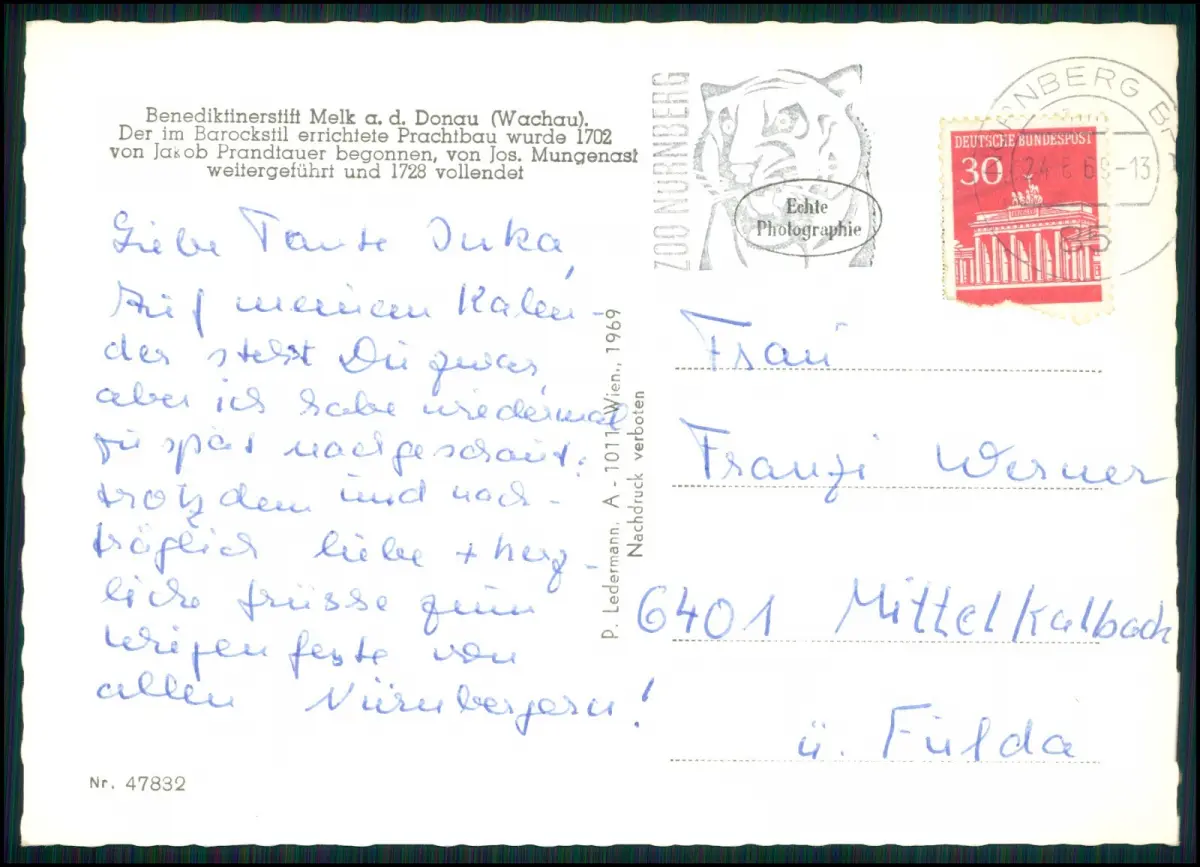 Benediktinerstift Melk a. d. Donau (Wachau).
Der im Barockstil errichtete Prachtbau wurde 1702
von Jakob Prandtauer begonnen, von Jos. Mungenast
weitergeführt und 1728 vollendet
Liebe Tante Inka,
Auf meinem Kalen-
der steht Du zwar,
aber ich habe wiedermal
zu spät nachgeschaut:
trotzdem und nach-
träglich liebe + herz-
liche Grüsse zum
Feste von
allen Nürnbergern!
Nr. 47832
P. Ledermann, A - 1011 Wien., 1969
Nachdruck verboten
ZOO NÜRNBERG
Echte
Photographie
DEUTSCHE BUNDESPOST
30
NÜRNBERG
24. 6 69-13
85
Frau
Franzi Werner
6401 Mittelkalbach
ü. Fulda